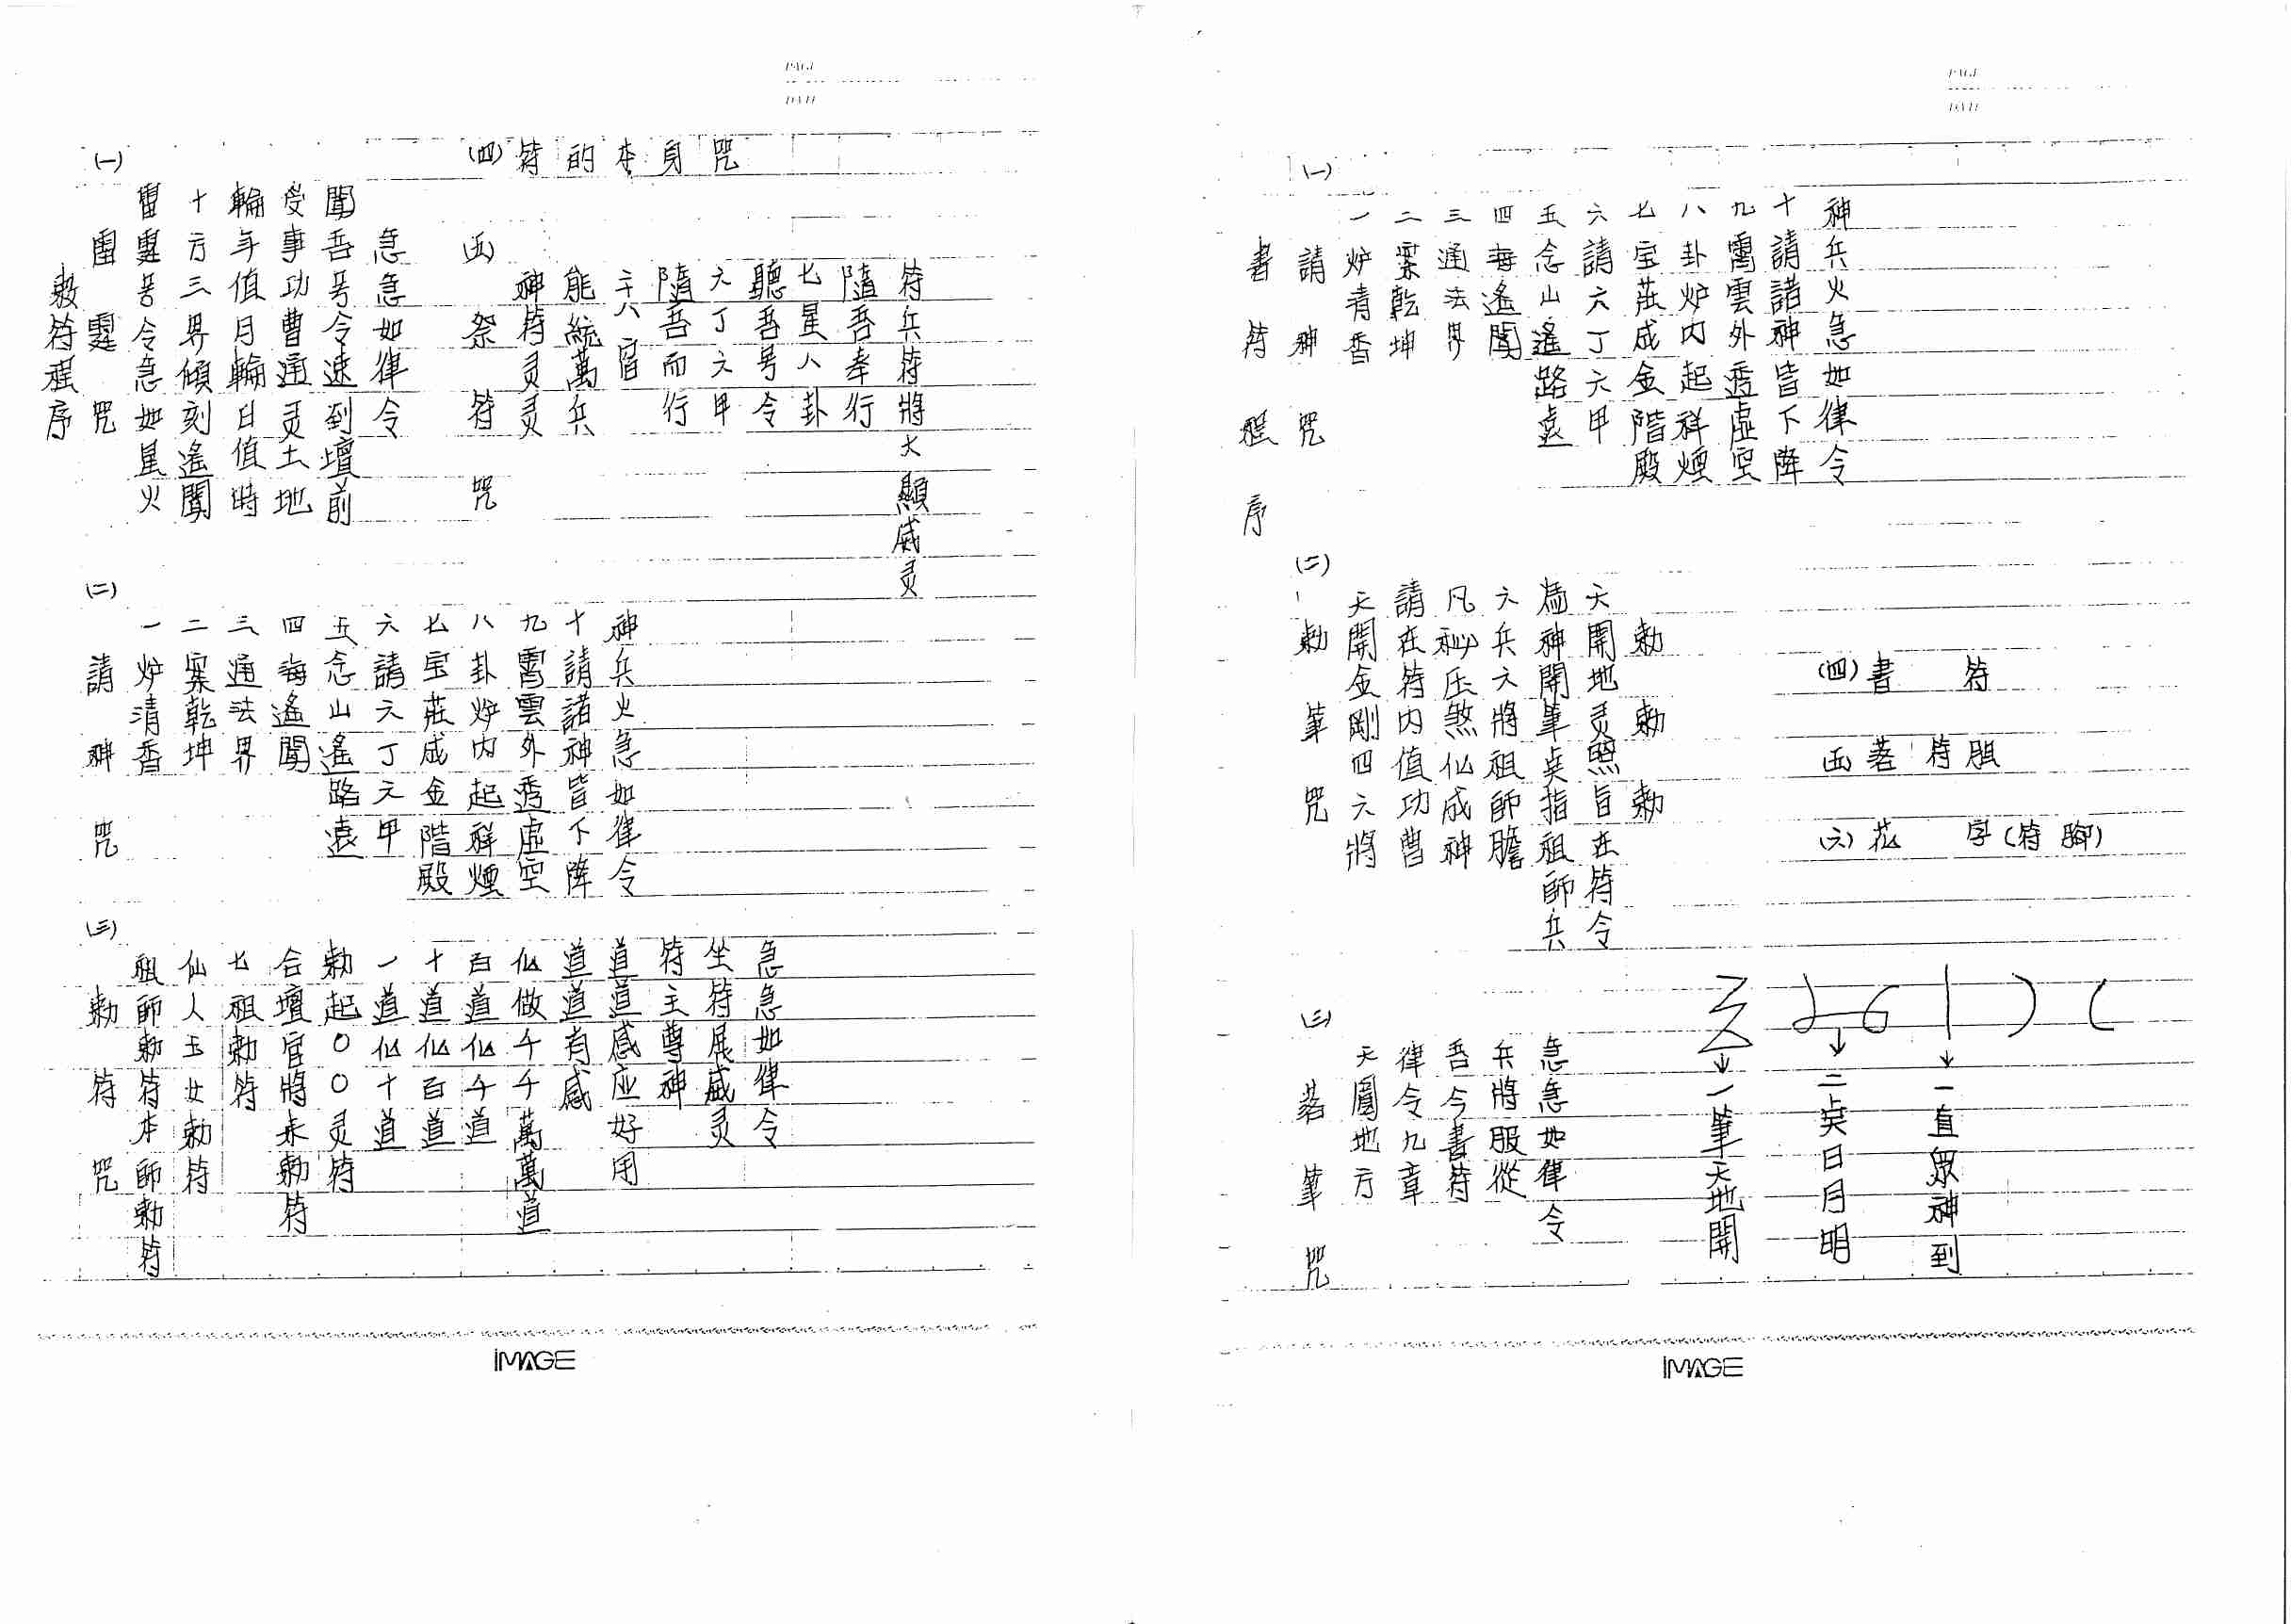 PAGE
DATE
敕符程序
(一)
雷霆咒
雷霆号令急如星火
十方三界傾刻遙聞
輪年值月輪日值時
受事功曹通灵土地
聞吾号令速到壇前
急急如律令
(二)
請神咒
一炉清香
二案乾坤
三通法界
四海遙聞
五念山遙路遠
六請六丁六甲
七宝莊成金階殿
八卦炉内起祥煙
九霄雲外透虛空
十請諸神皆下降
神兵火急如律令
(三)
勅符咒
祖師勅符本師勅符
仙人玉女勅符
七祖勅符
合壇官將未勅符
勅起〇〇灵符
一道仙十道
十道仙百道
百道仙千道
仙做千千萬萬道
道道有感
道道感应好用
符主尊神
坐符展威灵
急急如律令
(四)符的本身咒
(五)
祭符咒
神符灵灵
能統萬兵
二十八宿
隨吾而行
六丁六甲
聽吾号令
七星八卦
隨吾奉行
符兵符將大顯威灵
IMAGE
PAGE
DATE
書符程序
(一)
請神咒
一炉青香
二案乾坤
三通法界
四海遙聞
五念山遙路遠
六請六丁六甲
七宝莊成金階殿
八卦炉内起祥煙
九霄雲外透虛空
十請諸神皆下降
神兵火急如律令
(二)
勅筆咒
天開金剛四六將
請在符内值功曹
凡秘压煞仙成神
六兵六將祖師膽
為神開筆奌指祖師兵
天開地灵照旨在符令
勅勅勅
(三)
落筆咒
天圓地方
律令九章
吾今書符
兵將服從
急急如律令
(四)書 符
(五)落符胆
(六)花 字(符腳)
一筆天地開
二奌日月明
一直眾神到
IMAGE